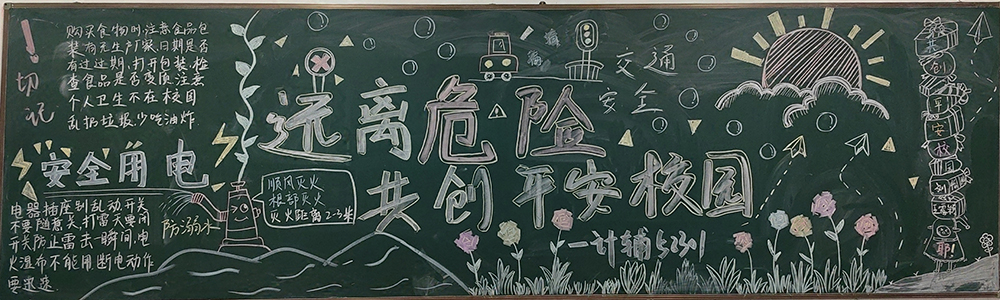 切记
购买食物时注意食品包
装有无生产厂家日期是否
有过过期,打开包装,检
查食品是否变质,注意
个人卫生不在校园
乱扔垃圾少吃油炸
安全用电
电器插座别乱动开关
不要随意关,打雷天要闭
开关防止雷击一瞬间,电
火湿布不能用断电动作
要迅速.
防溺水
顺风灭火
根部灭火
灭火距离2-3米
远离危险
共创平安校园
交通
安全
一计辅5231
共创平安校园
耶!